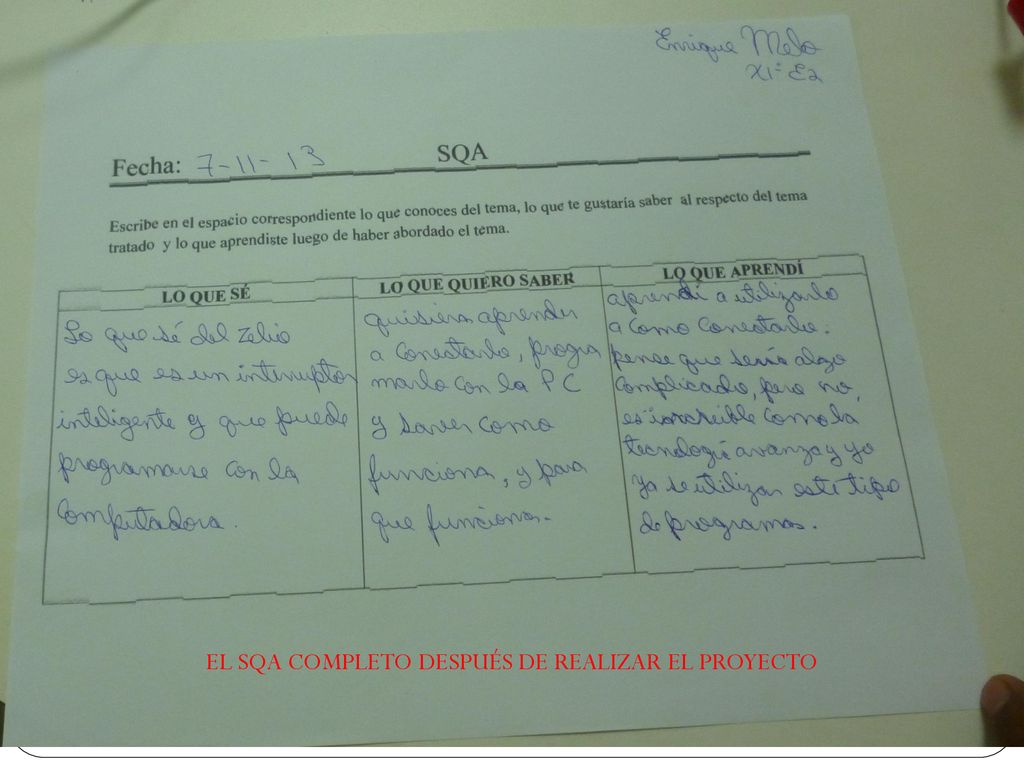 Enrique Melo
XI° E2
Fecha: 7-11-13 SQA
Escribe en el espacio correspondiente lo que conoces del tema, lo que te gustaría saber al respecto del tema
tratado y lo que aprendiste luego de haber abordado el tema.
LO QUE SÉ
Lo que sé del Zelio
es que es un interruptor
inteligente y que puede
programarse con la
computadora.
LO QUE QUIERO SABER
quisiera aprender
a conectarlo, progra
marlo con la PC
y saver como
funciona, y para
que funciona.
LO QUE APRENDÍ
aprendí a utilizarlo
a como conectarlo.
pense que sería algo
complicado, pero no,
es increible como la
tecnología avanza y yo
ya se utilizar este tipo
de programas.
EL SQA COMPLETO DESPUÉS DE REALIZAR EL PROYECTO